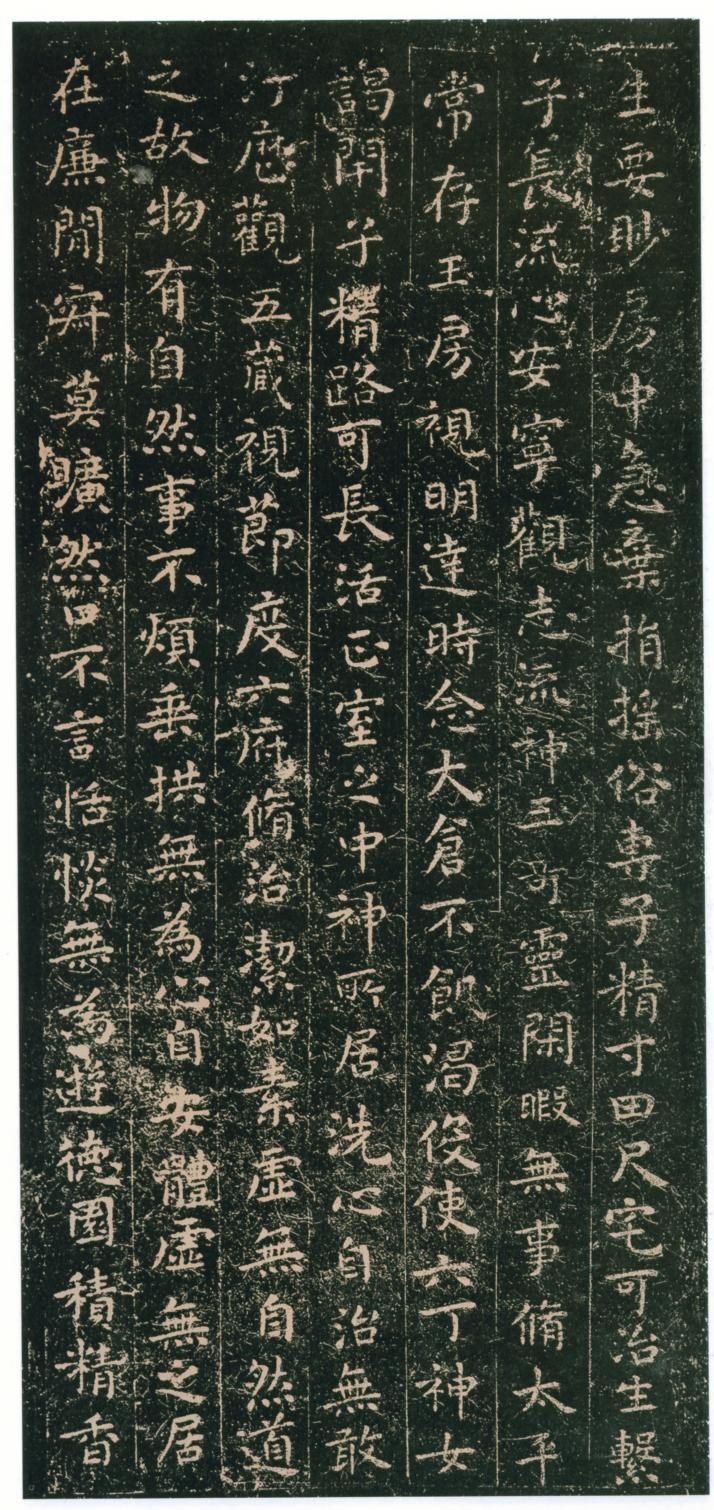 生要眇房中急棄捐搖俗專子精寸田尺宅可治生繫
子長流心安寧觀志流神三奇靈閑暇無事脩太平
常存玉房視明達時念大倉不飢渴役使六丁神女
謁閉子精路可長活正室之中神所居洗心自治無敢
汙歷觀五藏視節度六府脩治潔如素虛無自然道
之故物有自然事不煩垂拱無為心自安體虛無之居
在廉間寂莫曠然口不言恬惔無為遊德園積精香